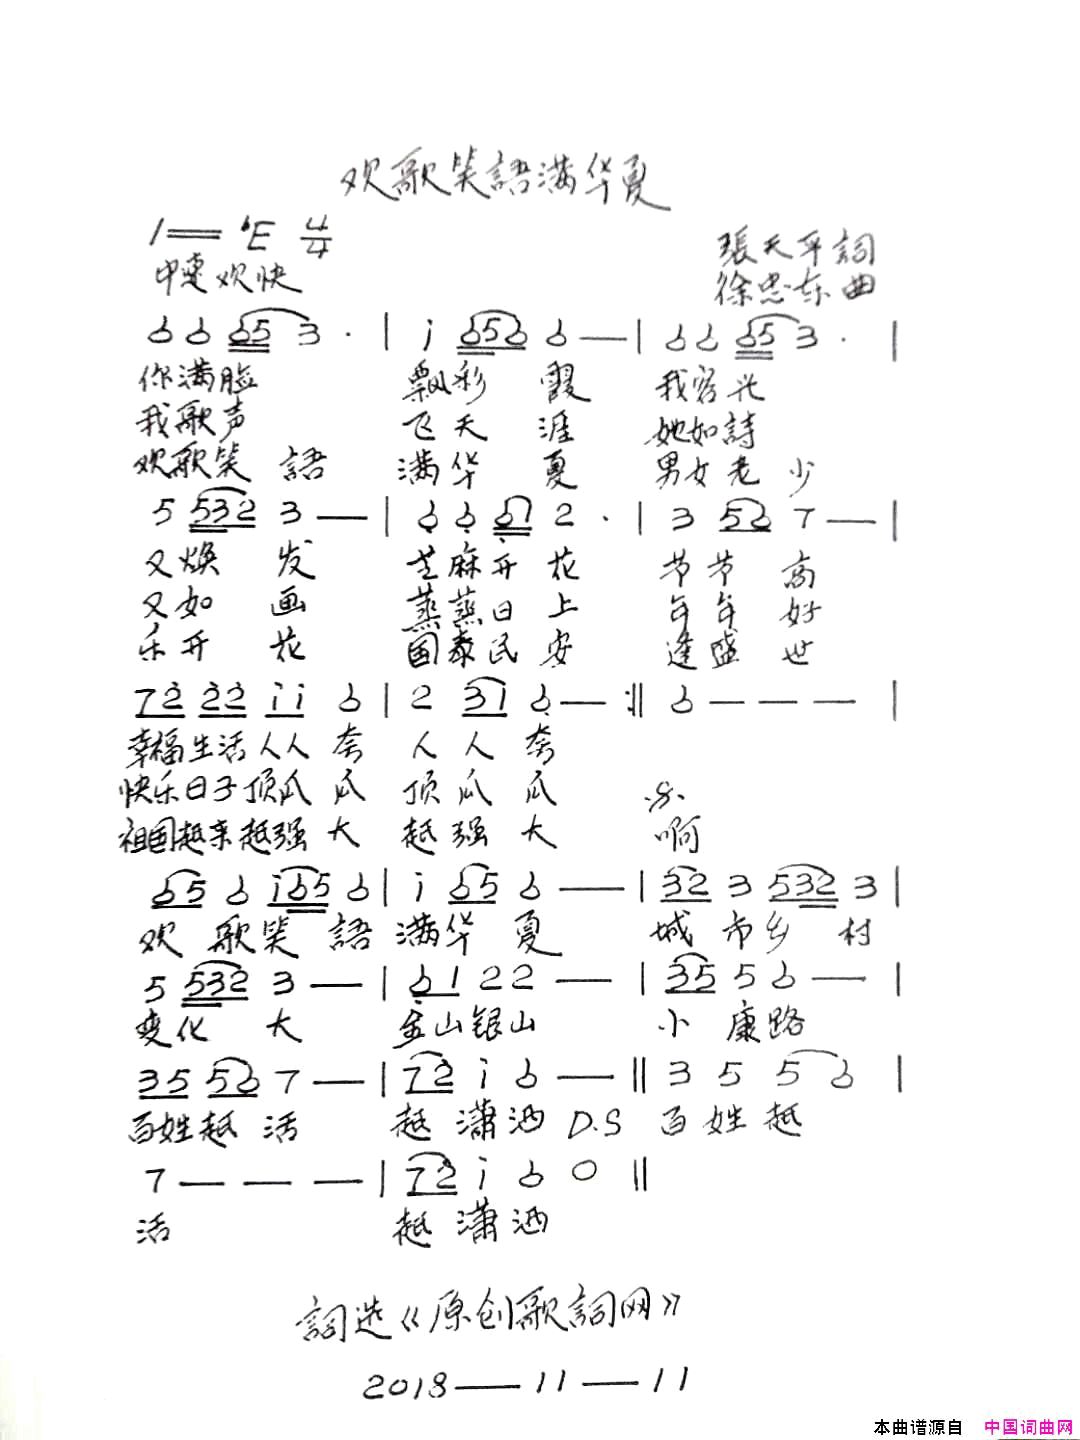 欢歌笑語满华夏
1=♭E 4/4
張天平詞
中速 欢快
徐忠东曲
6 6 65 3 · | i 656 6 — | 6 6 65 3 · |
你满脸 飘彩 霞 我容光
我歌声 飞天 涯 她如詩
欢歌笑 語 满华 夏 男女老 少
5 532 3 — | 6 6 61 2 · | 3 56 7 — |
又焕 发 芝麻开 花 节节 高
又如 画 蒸蒸日 上 年年 好
乐开 花 国泰民 安 逢盛 世
72 22 ii 6 | 2 31 6 — :‖ 6 — — — |
幸福生活人人 夸 人 人 夸
快乐日子顶瓜 瓜 顶 瓜 瓜
祖国越来越强 大 越 强 大 啊
65 6 i65 6 | i 65 6 — | 32 3 532 3 |
欢 歌笑 語 满华 夏 城 市乡 村
5 532 3 — | 61 22 — | 35 5 6 — |
变化 大 金山银山 小 康路
35 56 7 — | 72 i 6 — ‖ 3 5 5 6 |
百姓越 活 越 潇洒 D.S 百 姓 越
7 — — — | 72 i 6 0 ‖
活 越 潇洒
詞选《原创歌詞网》
2018—11—11
本曲谱源自 中国词曲网